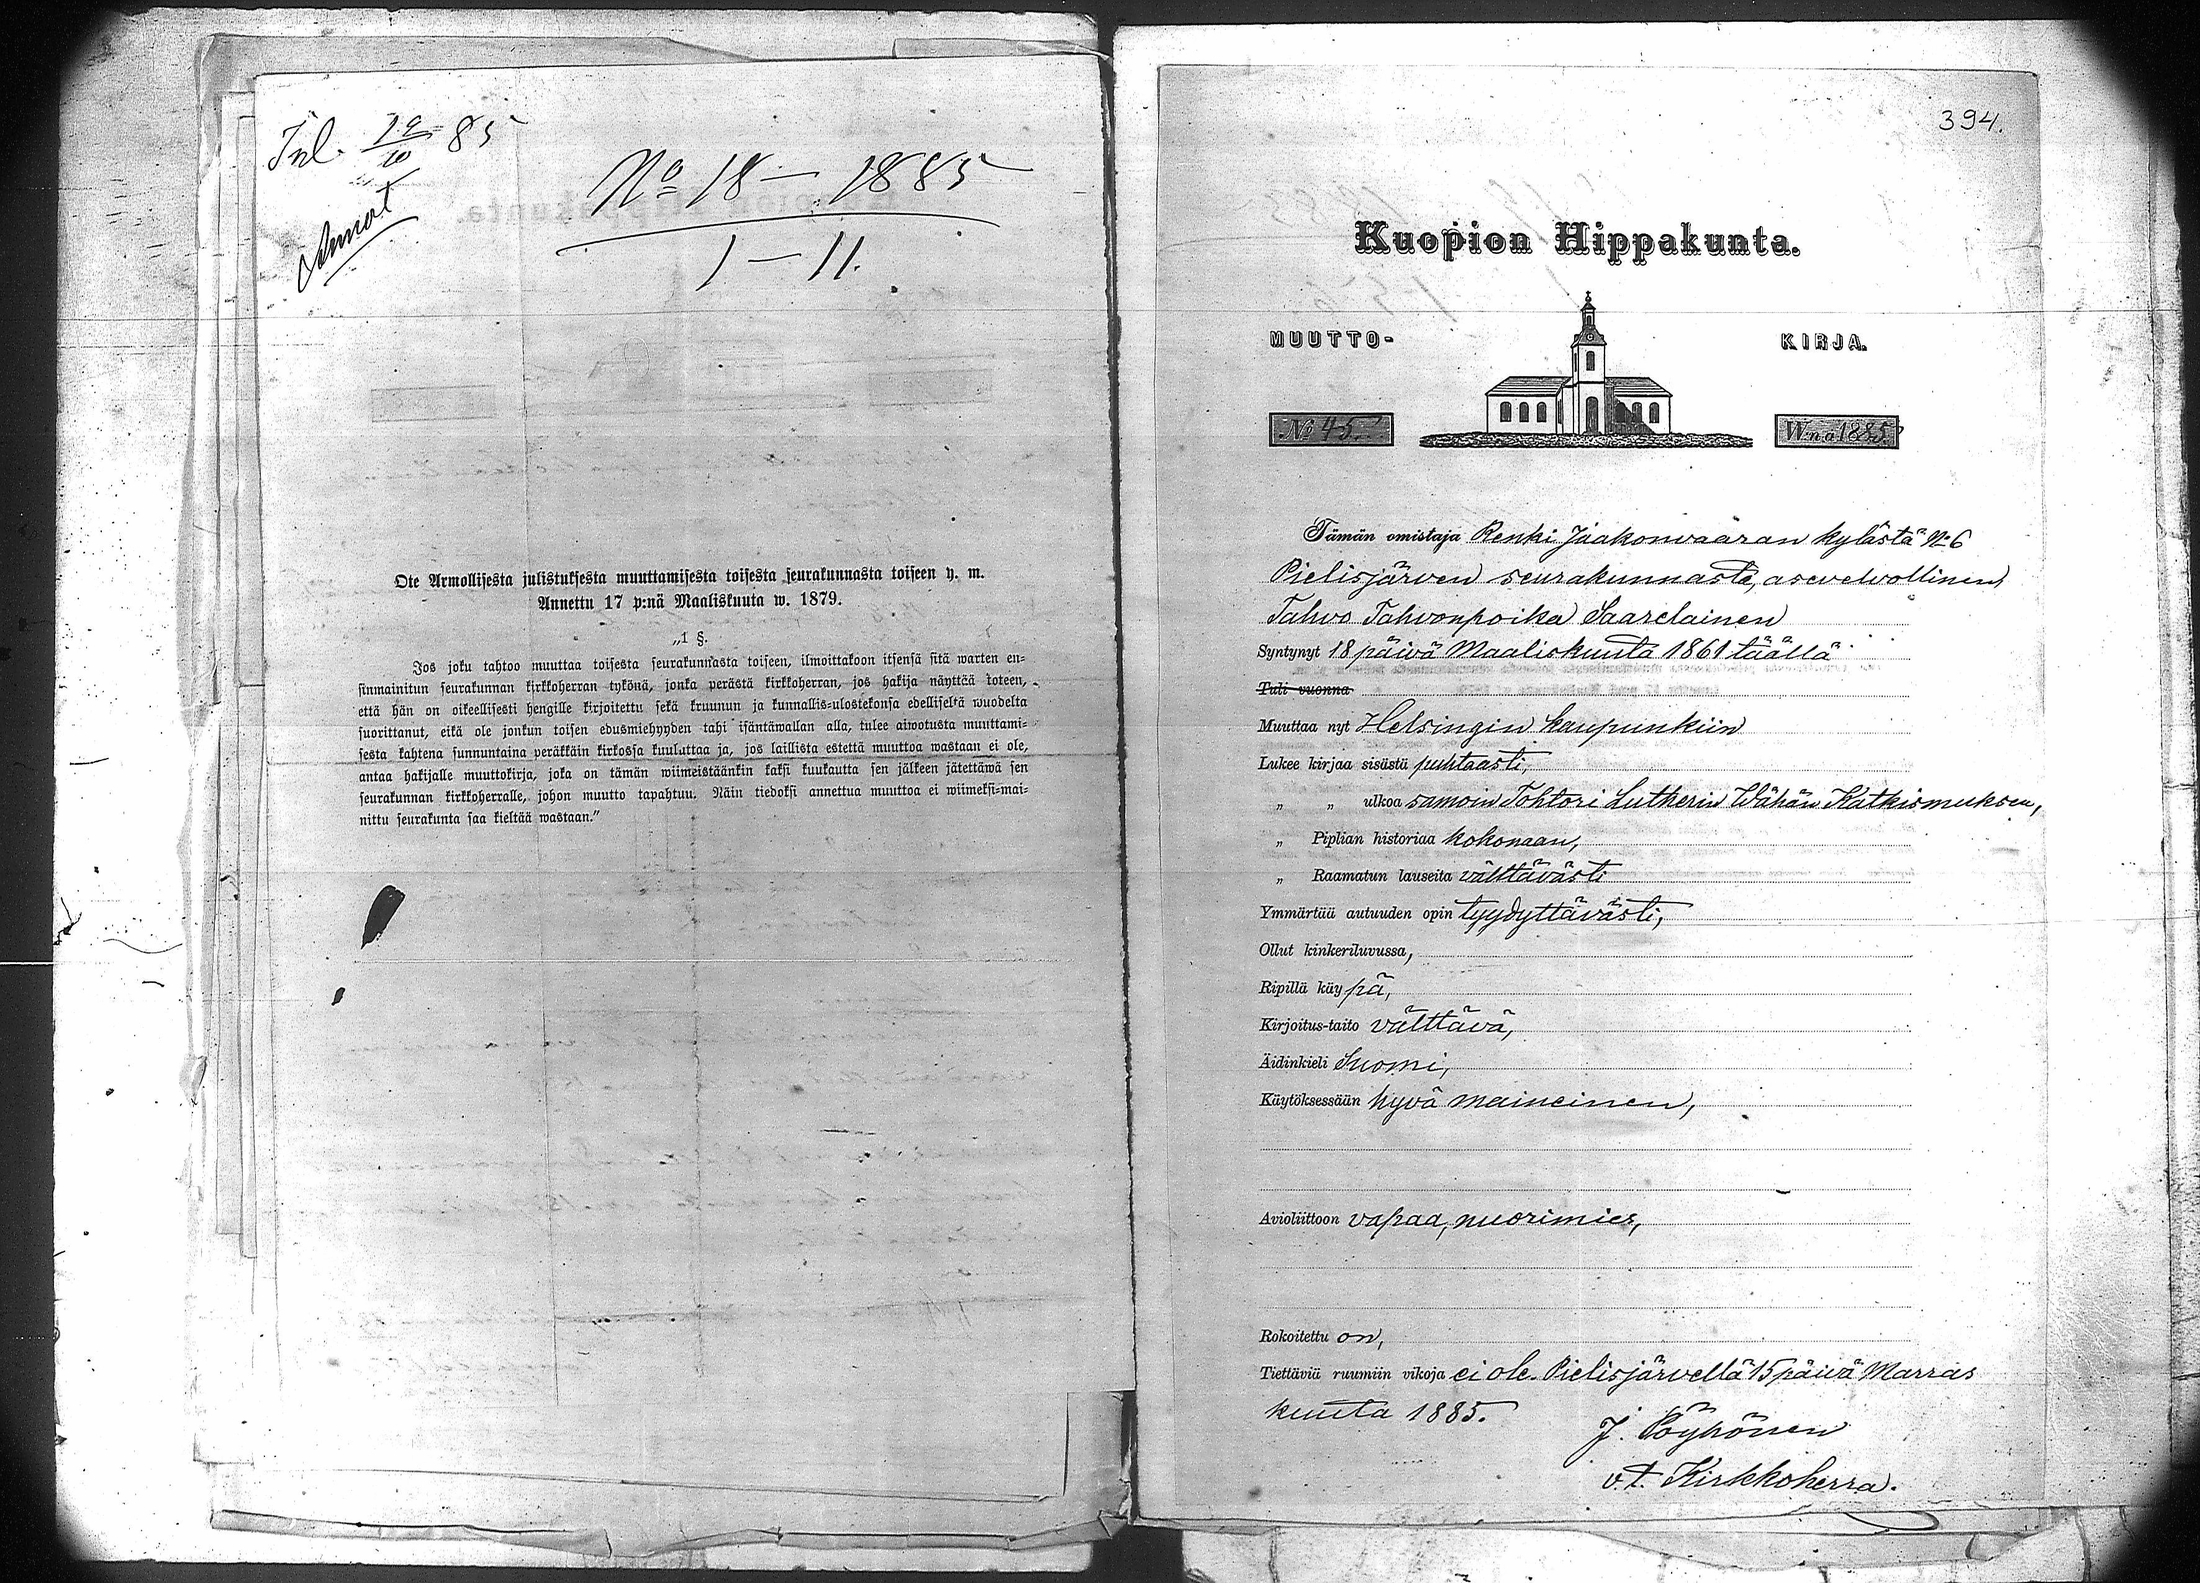 Inl. 19/10 85
Annot
No 18 — 1885
1 — 11.
Ote Armollisesta julistuksesta muuttamisesta toisesta seurakunnasta toiseen y. m.
Annettu 17 p:nä Maaliskuuta w. 1879.
„1 §.
Jos joku tahtoo muuttaa toisesta seurakunnasta toiseen, ilmoittakoon itsensä sitä warten en-
sinmainitun seurakunnan kirkkoherran tykönä, jonka perästä kirkkoherran, jos hakija näyttää toteen,
että hän on oikeellisesti hengille kirjoitettu sekä kruunun ja kunnallis-ulostekonsa edelliseltä wuodelta
suorittanut, eikä ole jonkun toisen edusmiehyyden tahi isäntäwallan alla, tulee aiwotusta muuttami-
sesta kahtena sunnuntaina peräkkäin kirkossa kuuluttaa ja, jos laillista estettä muuttoa wastaan ei ole,
antaa hakijalle muuttokirja, joka on tämän wiimeistäänkin kaksi kuukautta sen jälkeen jätettäwä sen
seurakunnan kirkkoherralle, johon muutto tapahtuu. Näin tiedoksi annettua muuttoa ei wiimeksi-mai-
nittu seurakunta saa kieltää wastaan.”
394.
Kuopion Hippakunta.
MUUTTO- KIRJA.
No 45. W:na 1885
Tämän omistaja Renki Jaakonvaaran kylästä No 6
Pielisjärven seurakunnasta, asevelvollinen
Tahvo Tahvonpoika Saarelainen
Syntynyt 18 päivä Maaliskuuta 1861 täällä
Tuli vuonna
Muuttaa nyt Helsingin kaupunkiin
Lukee kirjaa sisästä puhtaasti,
„ „ ulkoa samoin Tohtori Lutherin Wähän Katkismuksen,
„ Piplian historiaa kokonaan,
„ Raamatun lauseita välttävästi
Ymmärtää autuuden opin tyydyttävästi,
Ollut kinkeriluvussa,
Ripillä käypä,
Kirjoitus-taito välttävä,
Äidinkieli Suomi,
Käytöksessään hyvä maineinen,
Avioliittoon vapaa, nuorimies,
Rokoitettu on,
Tiettäviä ruumiin vikoja ei ole. Pielisjärvellä 15 päivä Marras
kuuta 1885.
J. Pöyhönen
v.t. Kirkkoherra.